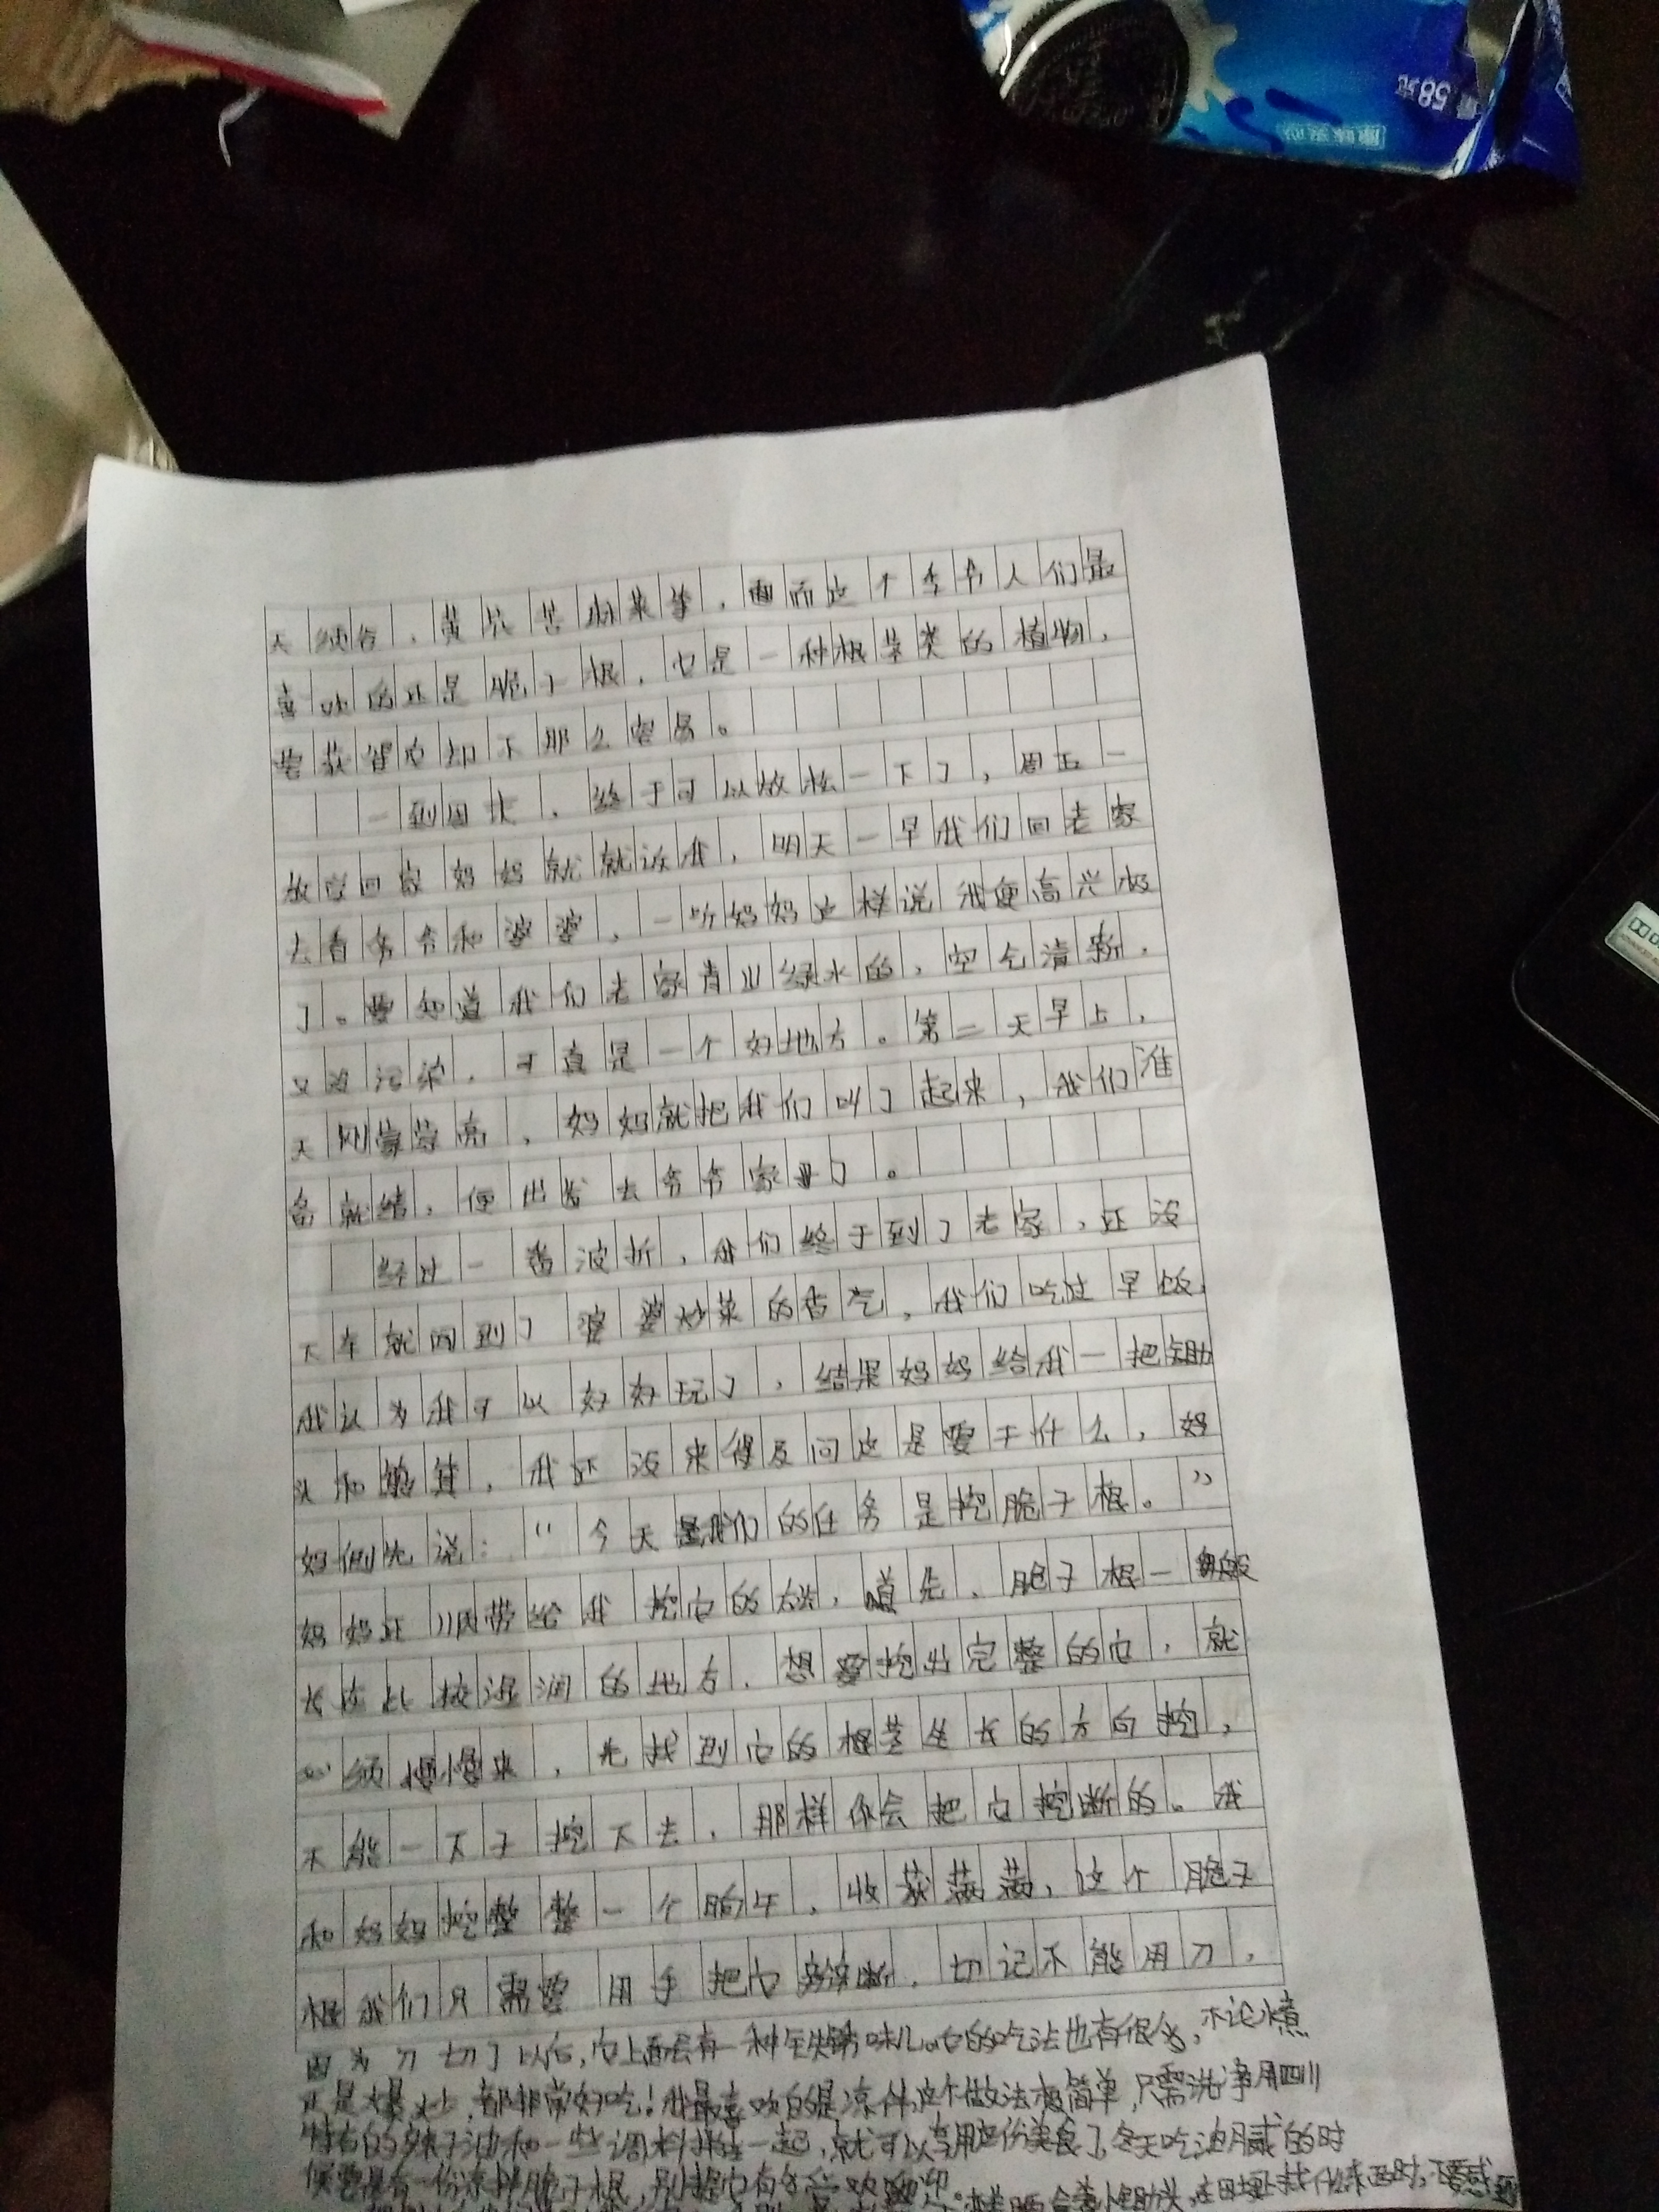 58克
喜欢的还是脆子根,它是一种根茎类的植物,
要获得它却不那么容易。
一到周末,终于可以放松一下了,周五一
放学回家妈妈就就诉我,明天一早我们回老家
去看爷爷和婆婆,一听妈妈这样说我便高兴极
了。要知道我们老家青山绿水的,空气清新,
又没污染,可真是一个好地方。第二天早上,
天刚蒙蒙亮,妈妈就把我们叫了起来,我们准
备就绪,便出发去爷爷家了。
经过一番波折,我们终于到了老家,还没
下车就闻到了婆婆炒菜的香气,我们吃过早饭,
我认为我可以好好玩了,结果妈妈给我一把锄
头和,我还没来得及问这是要干什么,妈
妈便先说:“今天我们的任务是挖脆子根。”
妈妈还给我挖它的,首先,脆子根一般
长在比较湿润的地方,想要挖出完整的它,就
必须慢慢来,先找到它的根茎生长的方向挖,
不能一下子挖下去,那样你会把它挖断的。我
和妈妈挖整整一个晌午,收获满满,这个脆子
根我们只需要用手把它断,切记不能用刀,
因为刀切了以后,它上面会有一种铁锈味儿。它的吃法也有很多,不论水煮
还是大火,都非常好吃!我最喜欢的是凉拌,这个做法极简单,只需洗净用四川
特有的辣子油和一些调料拌在一起,就可以享用这份美食了,冬天吃油腻的时